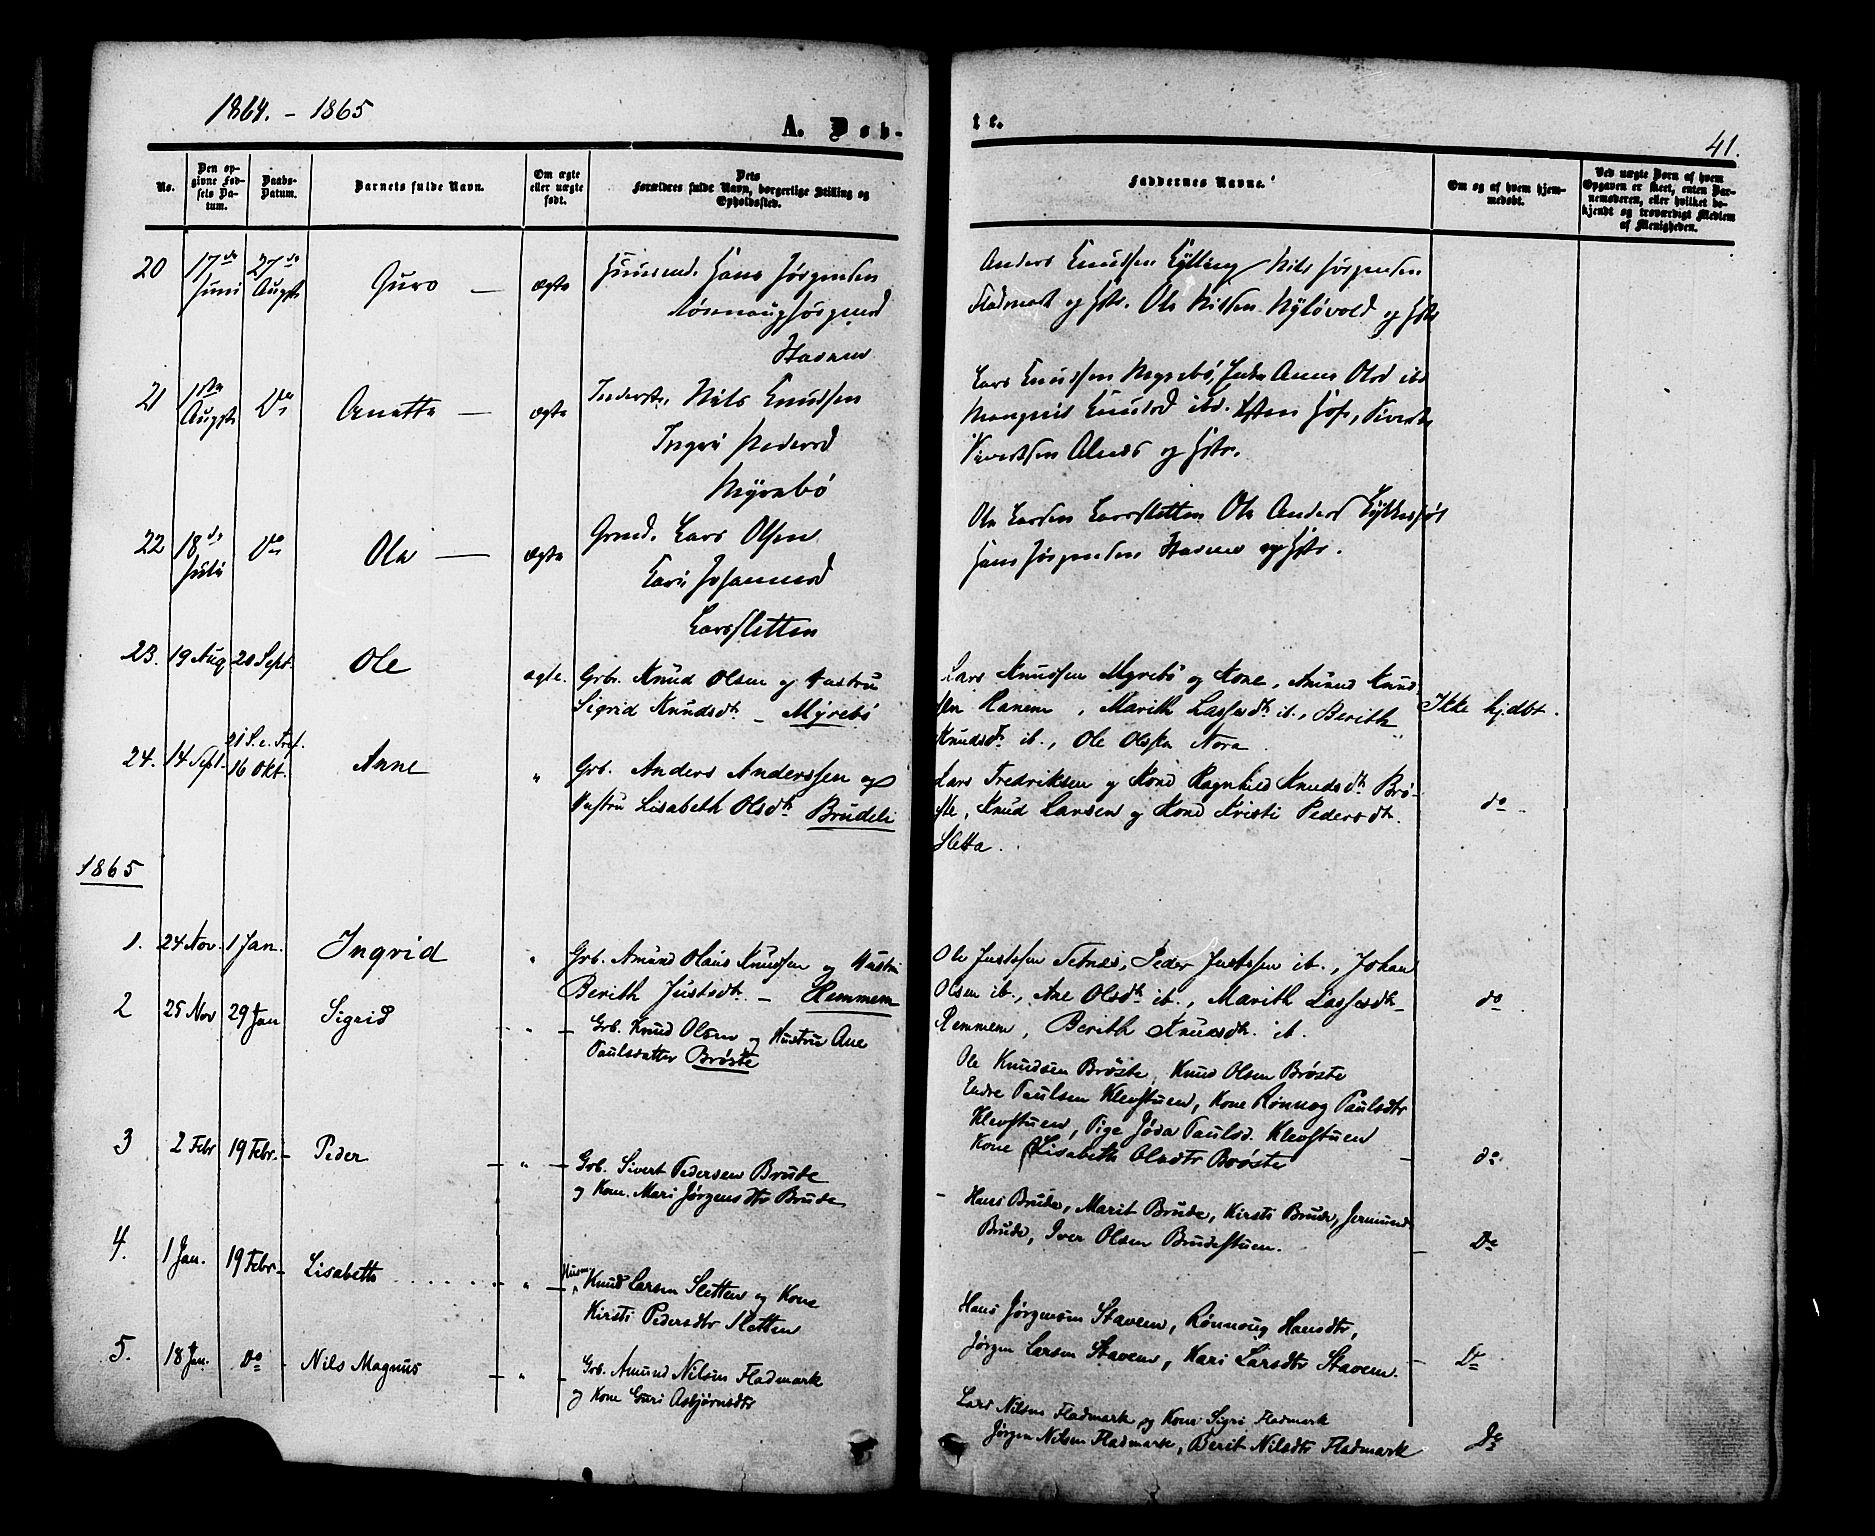 1864. - 1865
A. Døb-
te.
41.
No.
Den op-
givne Fød-
sels Da-
tum.
Daabs-
Datum.
Barnets fulde Navn.
Om ægte
eller uægte
født.
Dets
Forældres fulde Navn, borgerlige Stilling og
Opholdssted.
Faddernes Navne.
Om og af hvem hjem-
medøbt.
Ved uægte Børn af hvem
Opgaven er skeet, enten Bar-
nemoderen, eller hvilket be-
kjendt og troværdigt Medlem
af Menigheden.
20 17de Juni 27de Augst Guro — ægte
Hans Jørgensen
Stavem
Anders Knudsen Kylling Nils Jørgensen
Fladmark og Hstr. Ole Nilsen Nyløvold og Hstr
21 1ste Augst Do Anette — ægte Inderst. Nils Knudsen
Ingri Pedersd
Myrebø
Lars Knudsen Myrebø, Anne Olsd ibd
Knudsd ibd. Sivert
Sivertsen Alnes og Hstr.
22 18de Juli Do Ola — ægte Lars Olsen
Kari Johannesd
Larsletten
Ole Larsen Larsletten Ole Anders
Hans Jørgensen Stavem og Hstr.
23. 19 Aug. 20 Sept. Ole ægte. Grb. Knud Olsen og Hustru
Sigrid Knudsdtr. – Myrebø
Lars Knudsen Myrebø og Kone, Amund Knud-
sen Hanem, Marith Lassesdtr ib., Berith
Knudsdtr ib., Ole Olsen Nora
Ikke hjdbt.
24. 14 Sept. 21 S. e. Tref. 16 Okt. Anne " Grb. Anders Anderssen og
Hustru Lisabeth Olsdtr Brudeli
Lars Fredriksen og Kone Ragnhild Knudsdtr Brø-
ste, Knud Larsen og Kone Kristi Pedersdtr.
Sletta.
do
1865
1. 24 Nov. 1 Jan. Ingrid " Grb. Amund Olaus Knudsen og Hustru
Berith Justsdtr. – Hemmem
Ole Justesen Tetnes, Peder Justesen ib., Johan
Olsen ib., Ane Olsdtr ib., Marith Lassesdtr
Remmem, Berith Knudsdtr. ib.
do
2 25 Nov 29 Jan Sigrid " Grb. Knud Olsen og Hustru Ane
Paulsdatter Brøste
Ole Knudsen Brøste, Knud Olsen Brøste
Endre Paulsen Klevstuen, Kone Rønnog Paulsdtr
Klevstuen, Pige Jøda Paulsd. Klevstuen
Kone Lisabeth Olsdtr Brøste
do.
3 2 Febr 19 Febr. Peder " Grb. Sivert Pedersen Brude
og Kone. Mari Jørgensdtr Brude
Hans Brude, Marit Brude, Kirsti Brude, Jermund
Brude, Iver Olsen Brudestuen.
Do
4. 1 Jan. 19 Febr. Lisabeth " Husm Knud Larsen Sletten og Kone
Kirsti Pedersdtr Sletten
Hans Jørgensen Stavem, Rønnoug Hansdtr,
Jørgen Larsen Stavem, Kari Larsdtr Stavem.
Do
5. 18 Jan. Do Nils Magnus " Grb. Amund Nilsen Fladmark
og Kone Guri Asbjørnsdtr
Lars Nilsen Fladmark og Kone Sigri Fladmark
Jørgen Nilsen Fladmark, Berit Nilsdtr Fladmark
Do